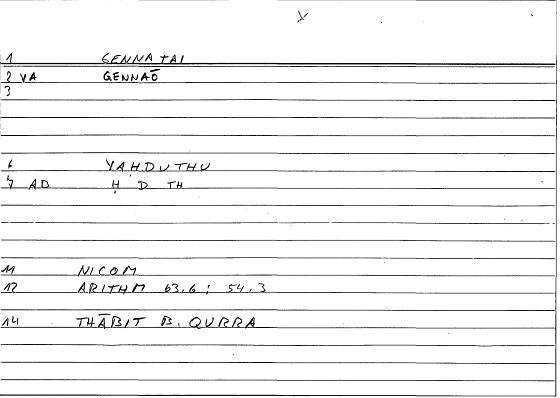 1 GENNATAI
2 VA GENNAŌ
3
6 YAḤDUTHU
7 AD Ḥ D TH
11 NICOM
12 ARITHM 63.6 ; 54.3
14 THĀBIT B. QURRA